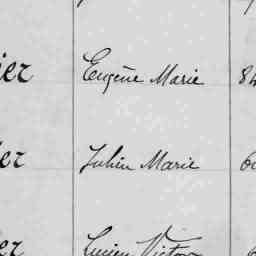 ier Eugène Marie 84
ier Julien Marie 60
er Lucien Victor